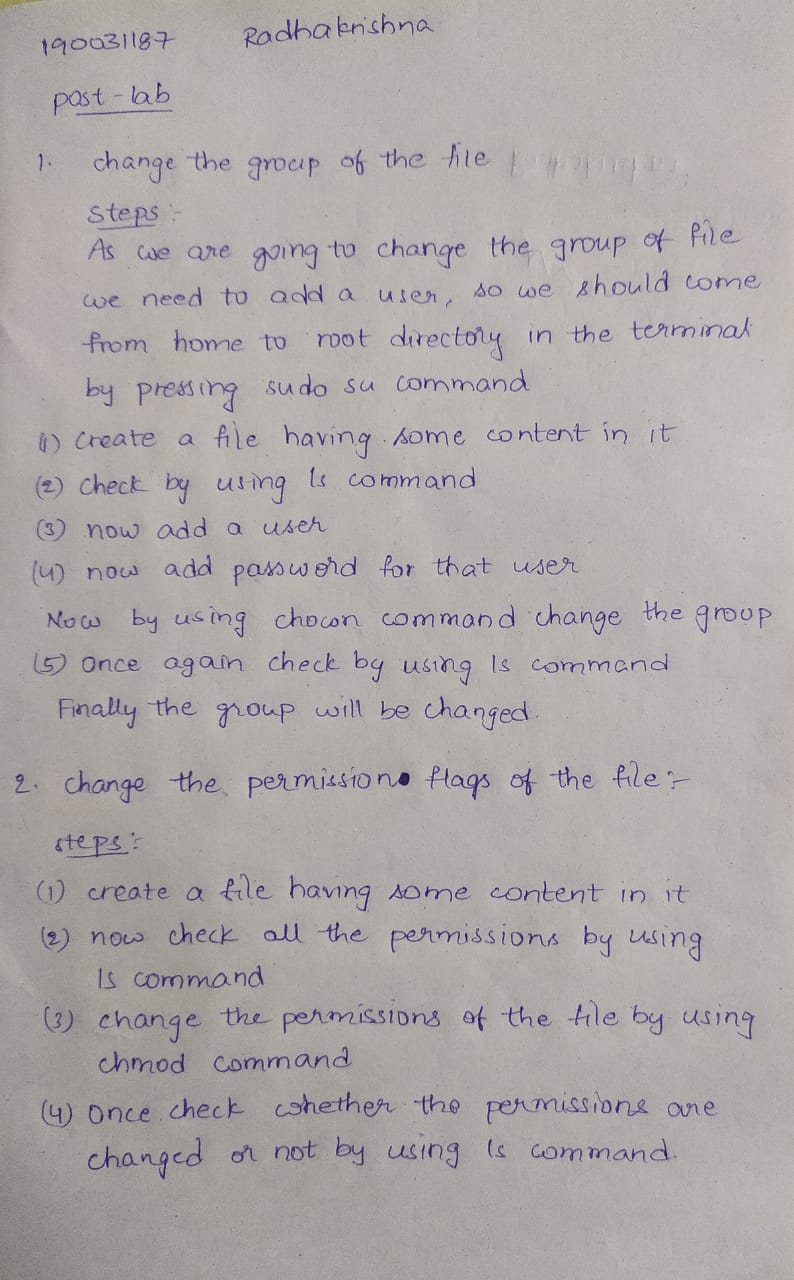 190031187 Radhakrishna
post-lab
1. change the group of the file
steps :-
As we are going to change the group of file
we need to add a user, so we should come
from home to root directory in the terminal
by pressing sudo su command
(1) Create a file having some content in it
(2) Check by using ls command
(3) now add a user
(4) now add password for that user
Now by using chown command change the group
(5) Once again check by using ls command
Finally the group will be changed.
2. change the permissions flags of the file :-
steps :-
(1) create a file having some content in it
(2) now check all the permissions by using
ls command
(3) change the permissions of the file by using
chmod command
(4) Once check whether the permissions are
changed or not by using ls command.